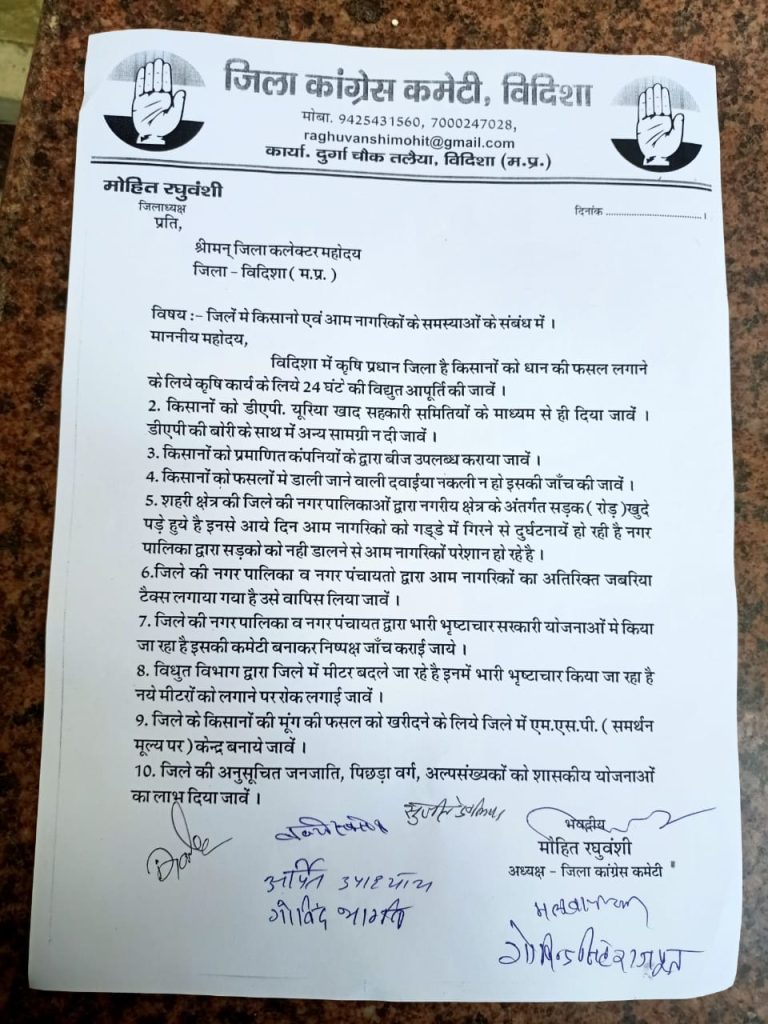 जिला कांग्रेस कमेटी, विदिशा
मोबा. 9425431560, 7000247028,
raghuvanshimohit@gmail.com
कार्या. दुर्गा चौक तलैया, विदिशा (म.प्र.)
मोहित रघुवंशी
जिलाध्यक्ष
दिनांक ................................।
प्रति,
श्रीमन् जिला कलेक्टर महोदय
जिला - विदिशा ( म.प्र. )
विषय :- जिलें मे किसानो एवं आम नागरिकों के समस्याओं के संबंध में ।
माननीय महोदय,
विदिशा में कृषि प्रधान जिला है किसानों को धान की फसल लगाने
के लिये कृषि कार्य के लिये 24 घंटे की विद्युत आपूर्ति की जावें ।
2. किसानों को डीएपी. यूरिया खाद सहकारी समितियों के माध्यम से ही दिया जावें ।
डीएपी की बोरी के साथ में अन्य सामग्री न दी जावें ।
3. किसानों को प्रमाणित कंपनियों के द्वारा बीज उपलब्ध कराया जावें ।
4. किसानों को फसलों मे डाली जाने वाली दवाईया नकली न हो इसकी जाँच की जावें ।
5. शहरी क्षेत्र की जिले की नगर पालिकाओं द्वारा नगरीय क्षेत्र के अंतर्गत सड़क ( रोड़ ) खुदे
पड़े हुये है इनसे आये दिन आम नागरिको को गड्डे में गिरने से दुर्घटनायें हो रही है नगर
पालिका द्वारा सड़को को नही डालने से आम नागरिकों परेशान हो रहे है ।
6.जिले की नगर पालिका व नगर पंचायतो द्वारा आम नागरिकों का अतिरिक्त जबरिया
टैक्स लगाया गया है उसे वापिस लिया जावें ।
7. जिले की नगर पालिका व नगर पंचायत द्वारा भारी भृष्टाचार सरकारी योजनाओं मे किया
जा रहा है इसकी कमेटी बनाकर निष्पक्ष जाँच कराई जाये ।
8. विधुत विभाग द्वारा जिले में मीटर बदले जा रहे है इनमें भारी भृष्टाचार किया जा रहा है
नये मीटरों को लगाने पर रोक लगाई जावें ।
9. जिले के किसानों की मूंग की फसल को खरीदने के लिये जिले में एम.एस.पी. ( समर्थन
मूल्य पर ) केन्द्र बनाये जावें ।
10. जिले की अनुसूचित जनजाति, पिछड़ा वर्ग, अल्पसंख्यकों को शासकीय योजनाओं
का लाभ दिया जावें ।
भवदीय
मोहित रघुवंशी
अध्यक्ष - जिला कांग्रेस कमेटी
अर्पित उपाध्याय
गोविंद भार्गव
गोविन्द सिंह राजपूत